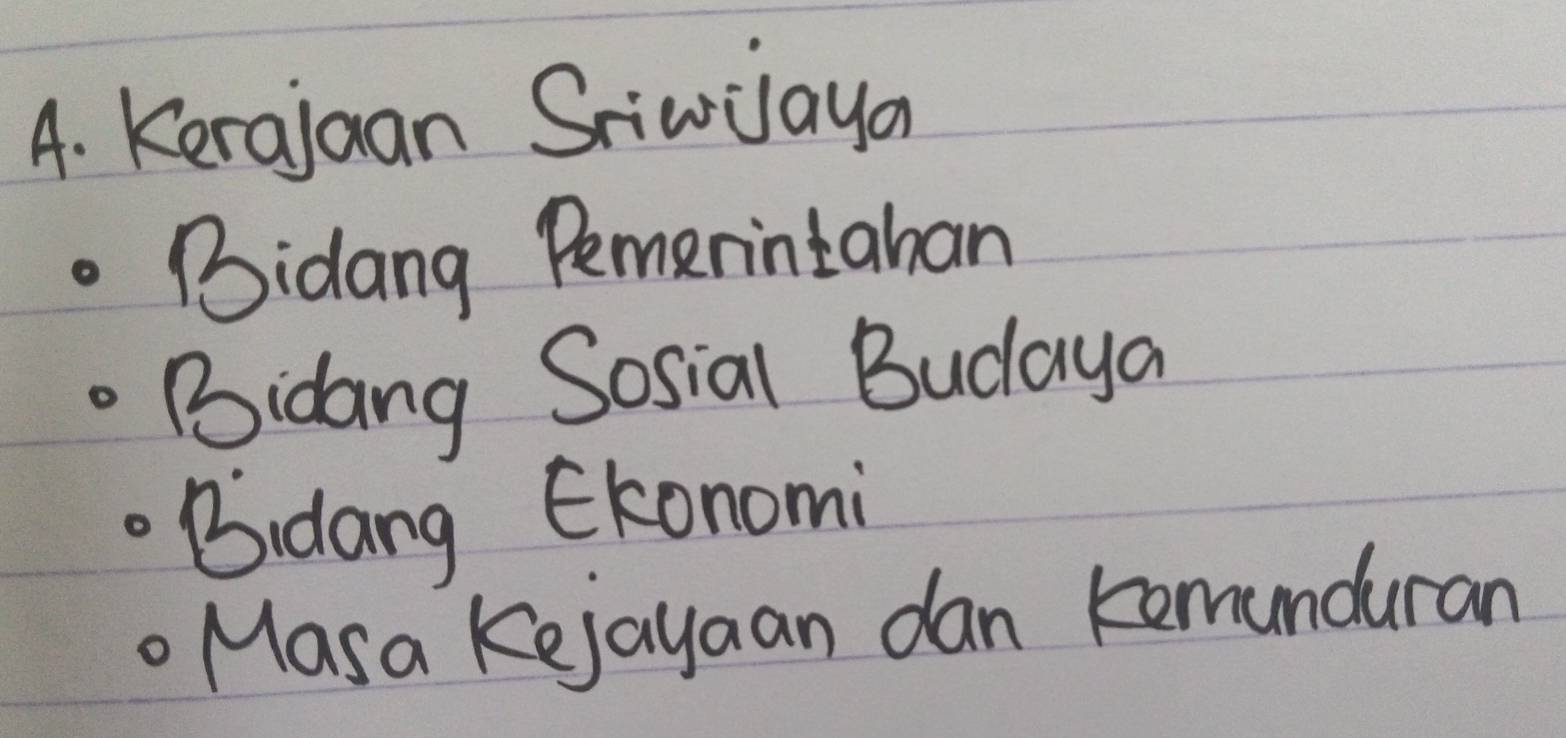 A. Kerajaan Sriwijaya
• Bidang Pemerintahan
• Bidang Sosial Budaya
• Bidang Ekonomi
• Masa Kejayaan dan Kemunduran